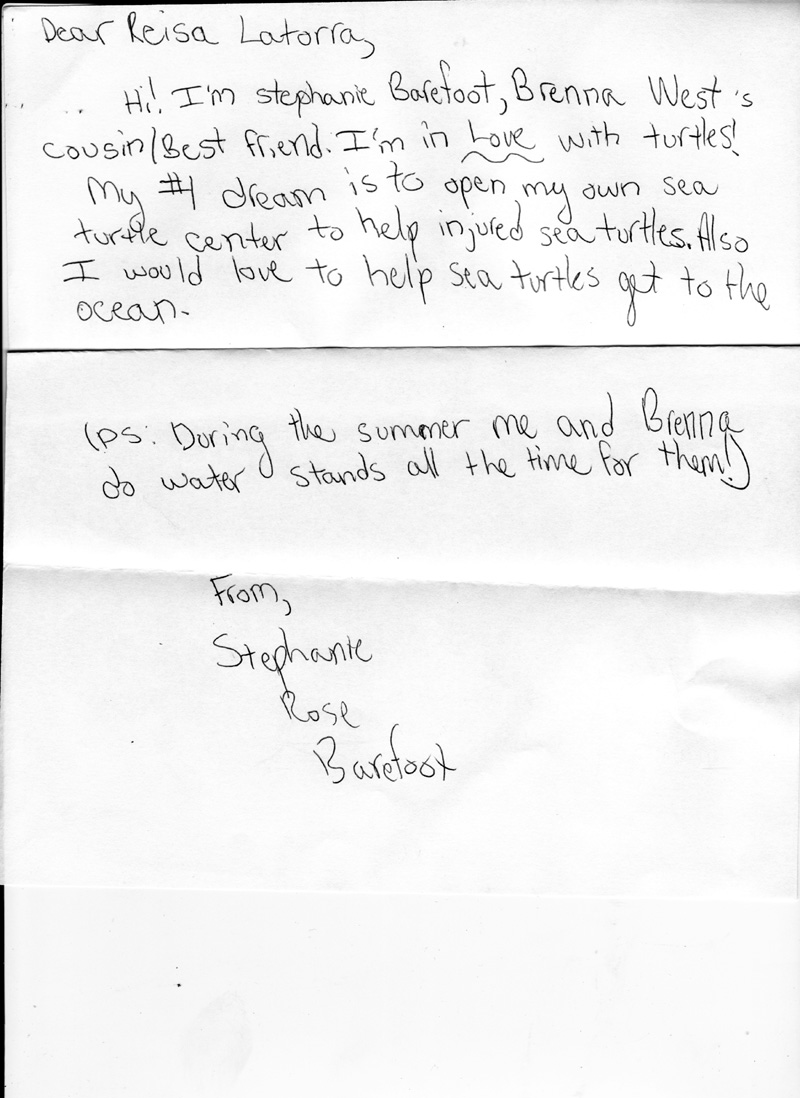 Dear Reisa Latorra,
Hi! I'm stephanie Barefoot, Brenna West's
cousin/Best friend. I'm in Love with turtles!
My #1 dream is to open my own sea
turtle center to help injured sea turtles. Also
I would love to help sea turtles get to the
ocean.
(PS: During the summer me and Brenna
do water stands all the time for them!)
From,
Stephanie
Rose
Barefoot